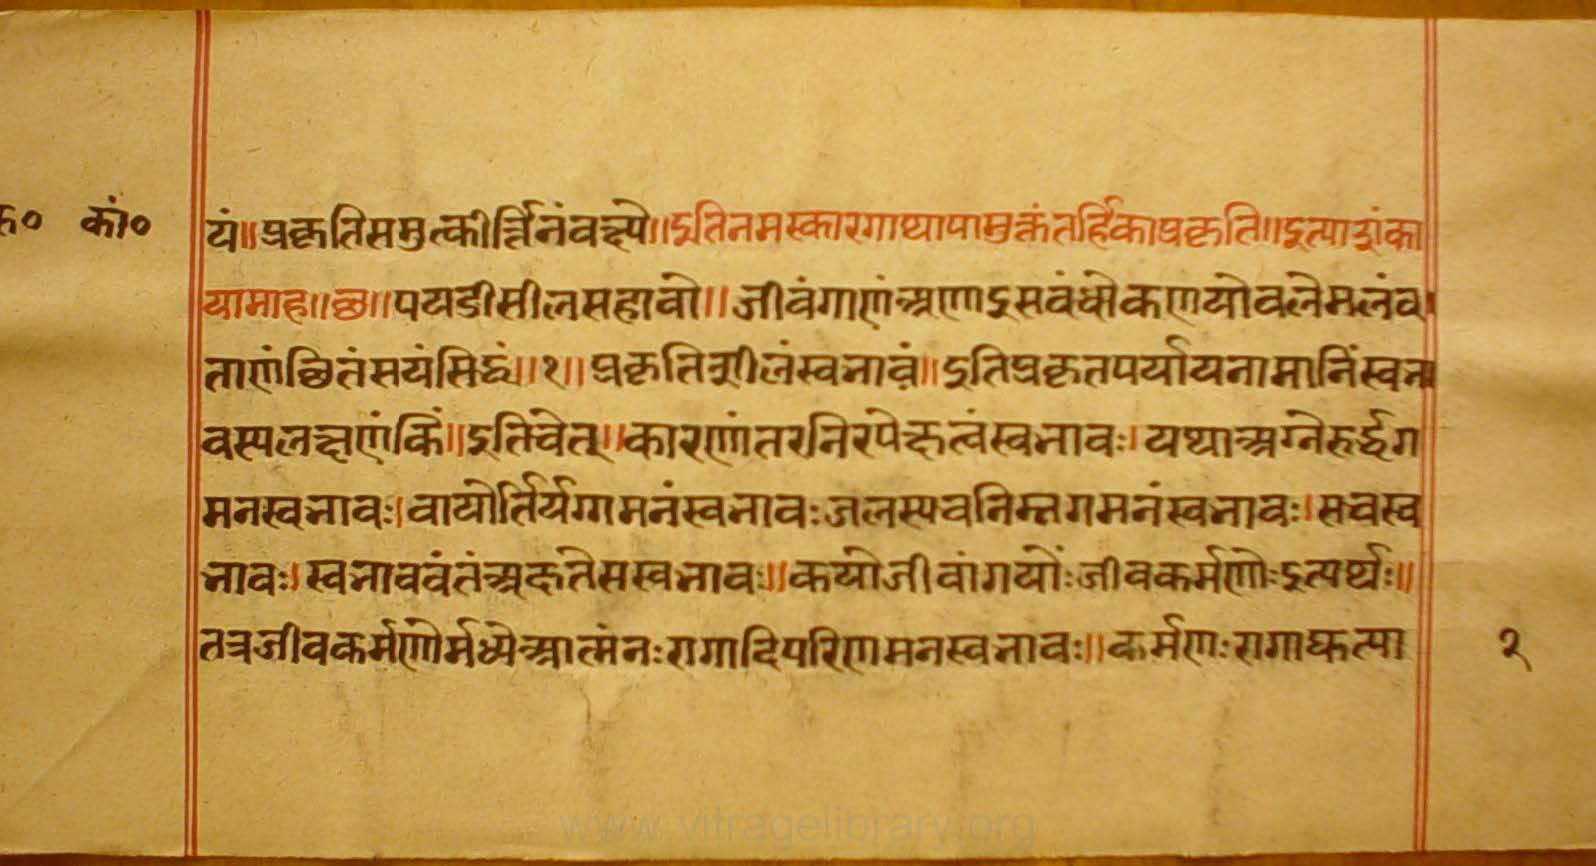 क० कां०
यं॥ प्रकृतिसमुत्कीर्त्तिनंवक्ष्ये॥ इतिनमस्कारगाथायामुक्तंतर्हिकाप्रकृति॥ इत्याशंका
यामाह॥ छ॥ पयडीसीलसहावो॥ जीवंगाणंअणाइसवंधोकणयोवलेमलंव
ताणंछितंसयंसिद्धं॥ १॥ प्रकृतिशीलंस्वभावं॥ इतिप्रकृतपर्यायनामानिंस्वभा
वस्यलक्षणंकिं॥ इतिचेत्॥ कारणंतरनिरपेक्षत्वंस्वभावः। यथाअग्नेरुर्द्धग
मनस्वभावः। वायोर्तिर्यग्गमनंस्वभावः जलस्यवनिम्नगमनंस्वभावः। सचस्व
भावः। स्वभाववंतंअक्षतेसस्वभावः॥ कयोजीवांगयोंः जीवकर्मणोः इत्यर्थः॥
तत्रजीवकर्मणोर्मध्येआत्मंनः रागादिपरिणमनस्वभावः॥ कर्मणः रागाद्यत्पा
१
www.vitragelibrary.org